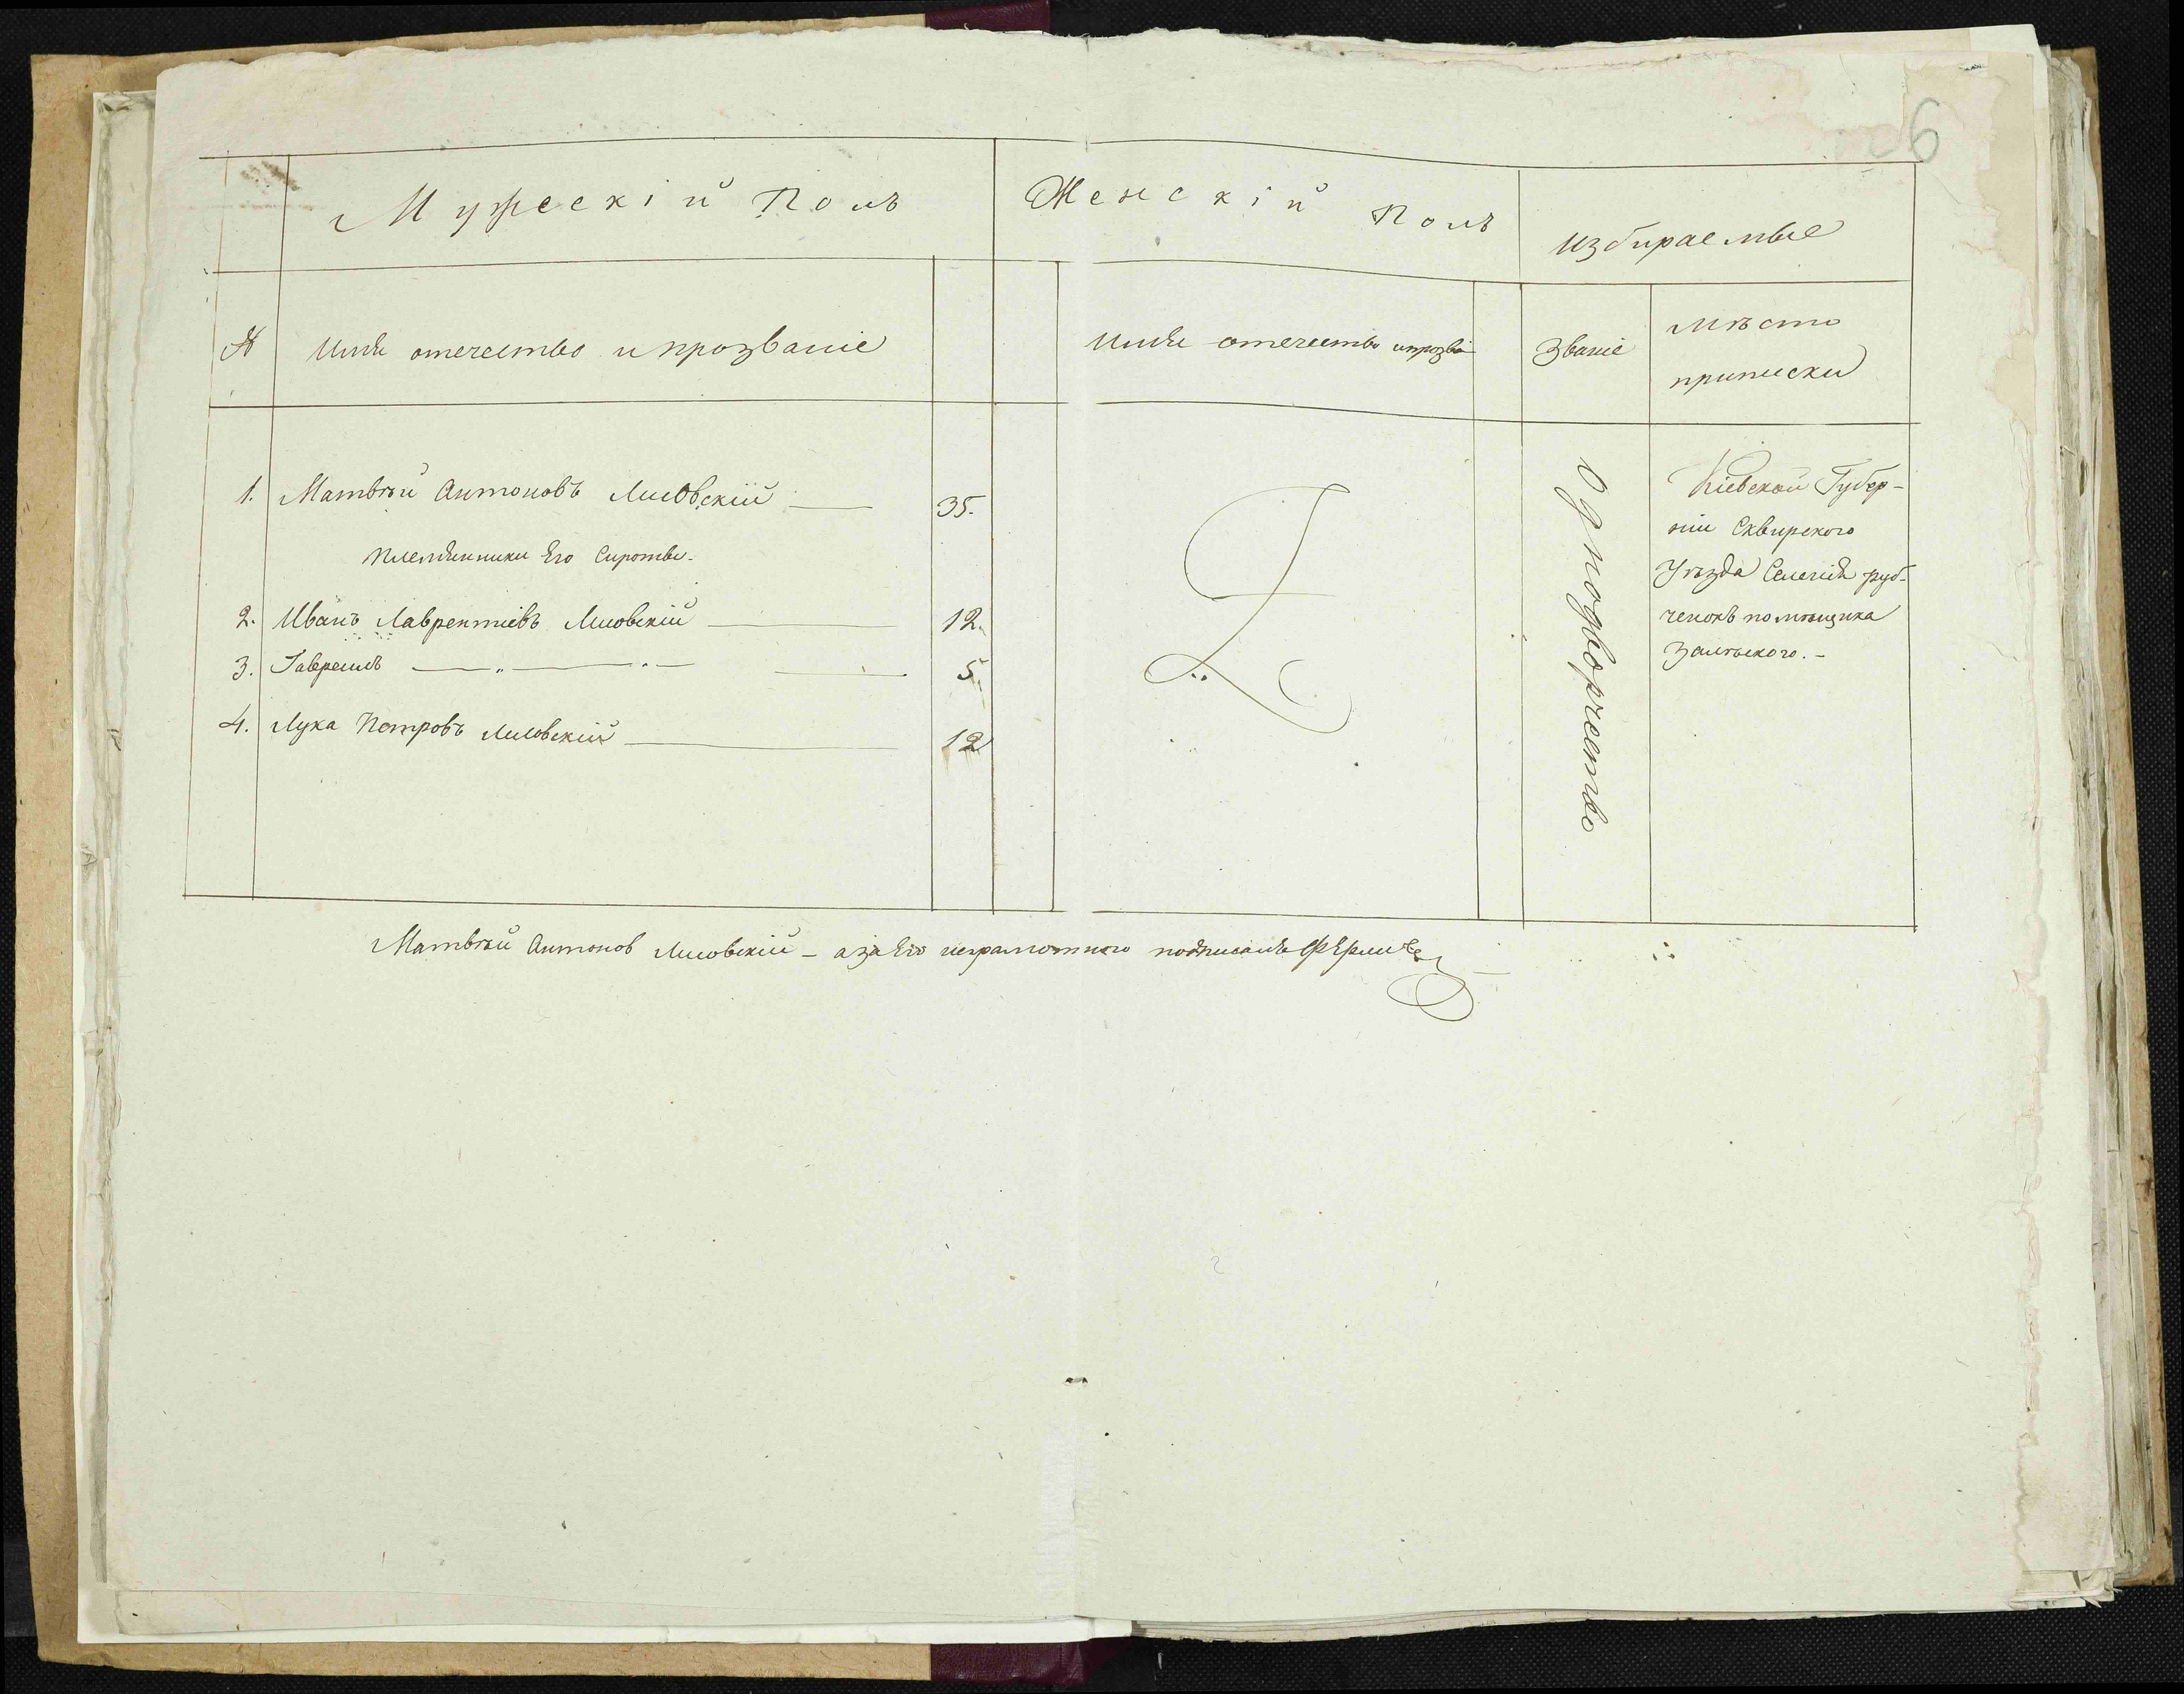 Мужескій Полъ
Женскій Полъ
Избираемые
№
Имя отечество и прозваніе
Имя отечество и прозва
Званіе
Мѣсто
приписки
1. Матвѣй Антоновъ Лисовскій — 35.
Племянники Его Сироты.
2. Иванъ Лаврентіевъ Лисовскій — 12.
3. Гаврешлъ — „ — „ — 5.
4. Лука Петровъ Лисовскій — 12
Однодворчество
Кіевской Губер-
ніи Сквирского
Уѣзда Селенія руб-
ченокъ помѣщика
Залѣского. -
Матвѣй Антонов Лисовскій – а за Его неграмотного подписалъ